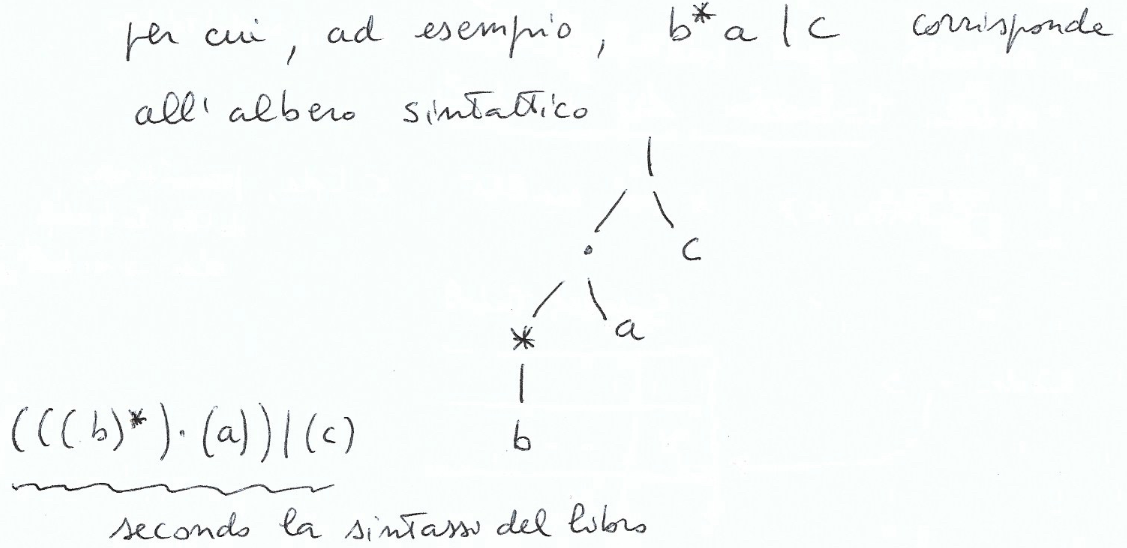 per cui, ad esempio, b*a | c corrisponde
all'albero sintattico
|
· c
* a
b
(((b)*)·(a))|(c)
secondo la sintassi del libro